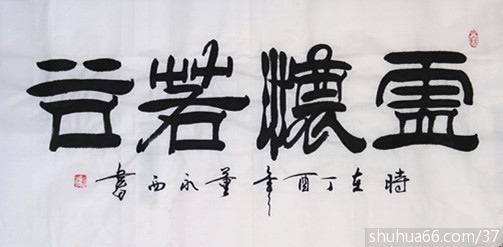 虛懷若谷
時在丁酉年董永西書
shuhua66.com/37